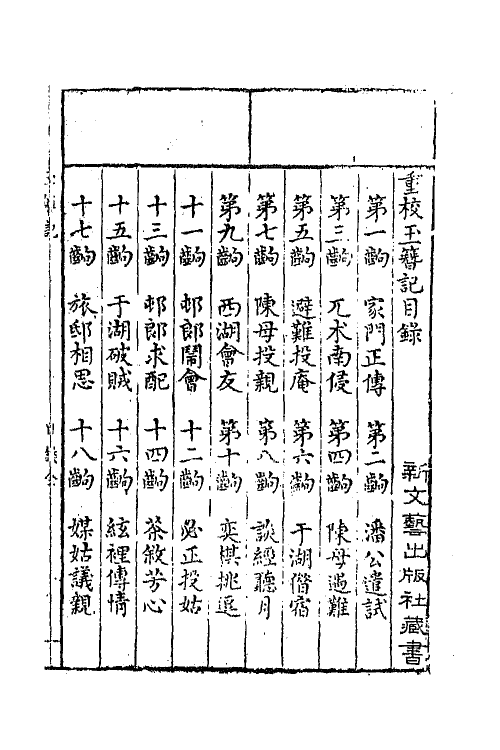 重校玉簪記目錄
新文藝出版社藏書
第一齣 家門正傳 第二齣 潘公遣試
第三齣 兀术南侵 第四齣 陳母遇難
第五齣 避難投庵 第六齣 于湖借宿
第七齣 陳母投親 第八齣 談經聽月
第九齣 西湖會友 第十齣 奕棋挑逗
十一齣 邨郎鬧會 十二齣 必正投姑
十三齣 邨郎求配 十四齣 茶敘芳心
十五齣 于湖破賊 十六齣 絃裡傳情
十七齣 旅邸相思 十八齣 媒姑議親